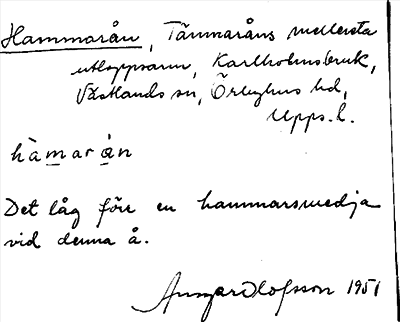 Hammarån, Tämnaråns mellersta
utloppsarm, Karlholmsbruk,
Västlands sn, Örbyhus hd,
Upps. l.
hàmarån
Det låg förr en hammarsmedja
vid denna å.
Ansgar Olofsson 1951